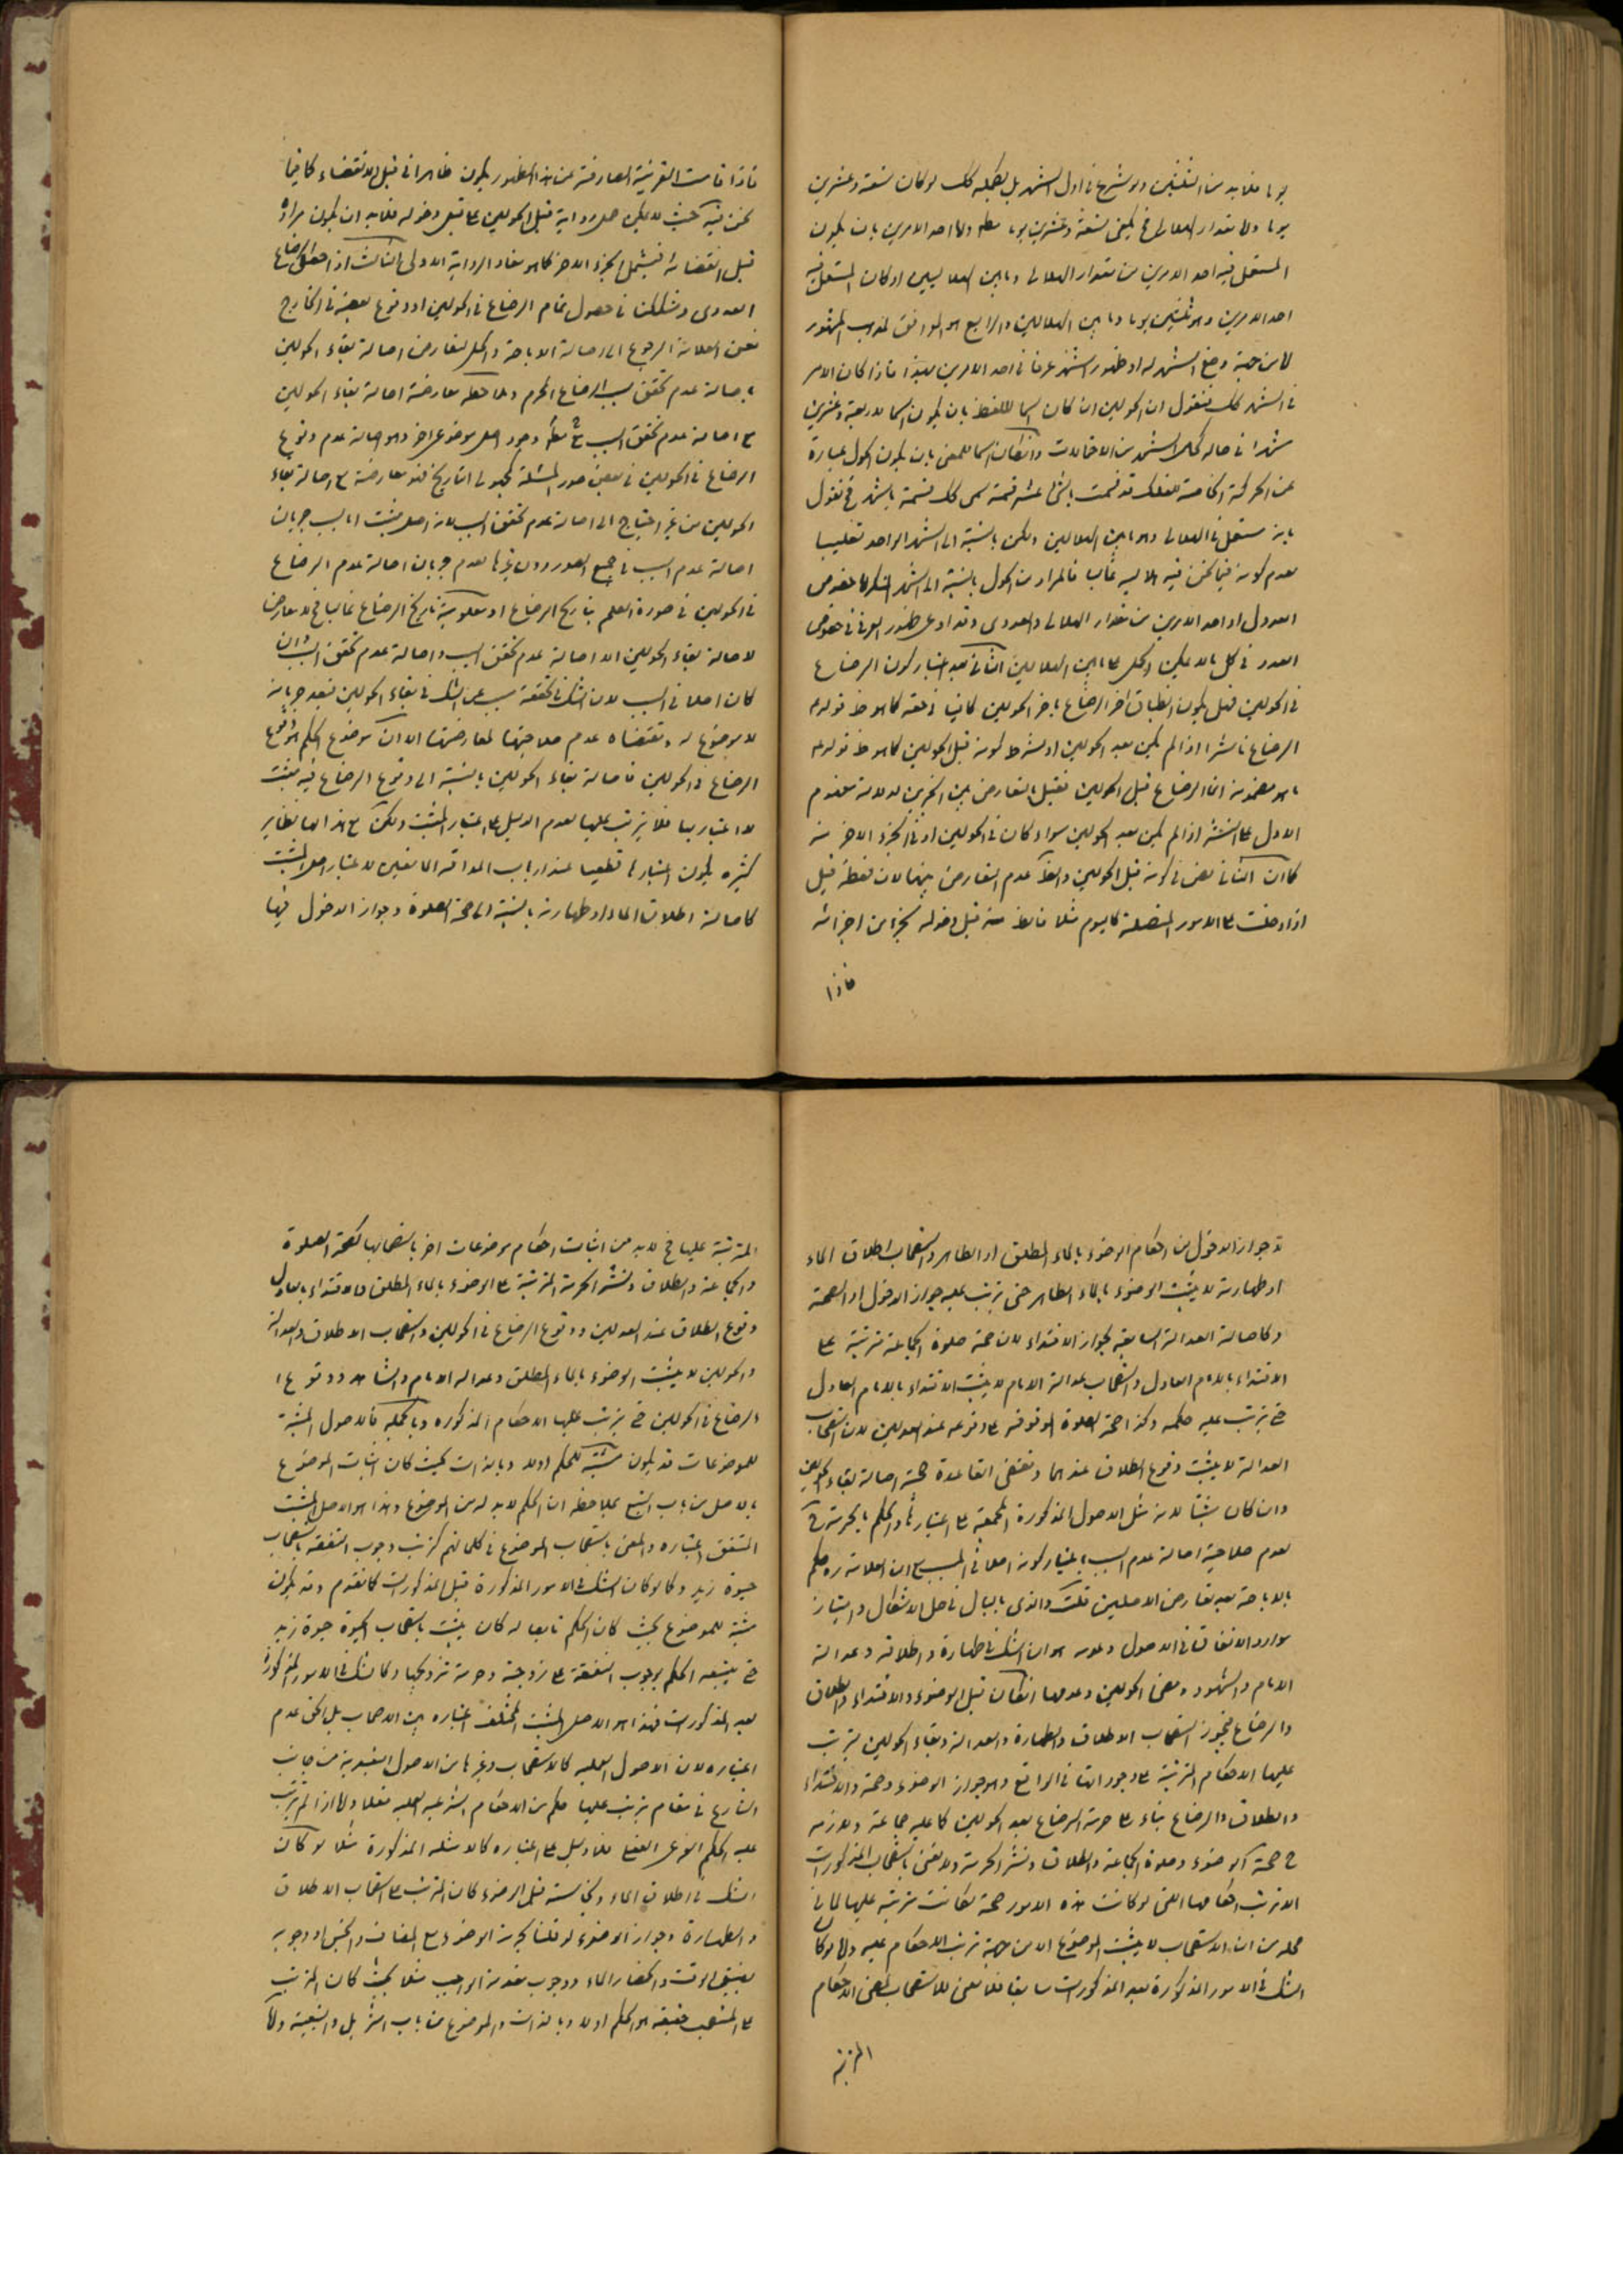 يوما فلا بد من الثلثين ولو شرع في اول الشهر بل يكمله كك لو كان تسعة وعشرين
يوما واما مقدار الهلالى فح يكفى تسعة وعشرين يوما مطلقا واما احد الامرين بان يكون
المستعمل فيه احد الامرين من مقدار الهلالى وما بين الهلاليين او كان المستعمل فيه
احد الامرين وهو ثلثين يوما وما بين الهلالين والرابع هو الموافق لمذهب المشهور
لا من جهة وضع الشهر له او ظهور الشهر عرفا في احد الامرين فاذا كان الامر
في الشهر كك فنقول ان الحولين ان كان اسما للفظ بان يكون اسما لاربعة وعشرين
شهرا في حاله كحال الشهر من الاحتمالات وان كان اسما للمعنى بان يكون الحول عبارة
عن الحركة الخاصة للفلك قد قسمت باثنى عشر قسمة سمى كل قسمة بالشهر فح نقول
بانه مستعمل في الهلالى وهو ما بين الهلالين ولكن بالنسبة الى الشهر الواحد تغليبا
لعدم كونه فيما نحن فيه الا غالبا فالمراد من الحول بالنسبة الى الشهر خصوص
العدول او احد الامرين من مقدار الهلالى والعددى وقد ادعى ظهور العرفى في خصوص
العدد في كل ما لا يمكن ما بين الهلالين الثانى بعد اعتبار كون الرضاع
في الحولين فهل يكون انطباق اخر الرضاع باخر الحولين كافيا كما هو ظ قوله
الرضاع ناشرا اذا لم يكن بعد الحولين او يشترط كونه قبل الحولين كما هو ظ قوله
ما هو مضمونه انما الرضاع قبل الحولين فقيل بالتعارض بين الخبرين لدلالة مفهوم
الاول على النشر اذا لم يكن بعد الحولين سواء كان في الحولين او في الجزء الاخر منه
كما ان الثانى نص في كونه قبل الحولين والظ عدم التعارض بينهما لان لفظة قبل
اذا دخلت على الامور المتصلة كاليوم مثلا فالظ منه قبل دخوله بجزء من اجزائه
فاذا
فاذا قامت القرينة الصارفة عن هذا الظهور يكون ظاهرا في قبل الانقضاء كما فيما
نحن فيه حيث لا يمكن حمل رواية قبل الحولين على قبل دخوله فلا بد ان يكون مراده
قبل انقضائه فيشمل الجزء الاخر كما هو مفاد الرواية الاولى الثالث اذا الرضاع
العددى وشككت في حصول تمام الرضاع في الحولين او وقوع بعضه في الخارج
فعن العلامة الرجوع الى اصالة الاباحة والحل لتعارض اصالة بقاء الحولين
باصالة عدم تحقق سبب الرضاع المحرم وملاحظه معارضة اصالة بقاء الحولين
مع اصالة عدم تحقق السبب وجود اصل موضوعى اخر وهو اصالة عدم وقوع
الرضاع في الحولين في بعض صور المسئلة كمجهولى التاريخ فهو معارضة مع اصالة بقاء
الحولين من غير احتياج الى اصالة عدم تحقق السبب لانه اصل مثبت اما بسبب جريان
اصالة عدم السبب في جميع الصور دون غيرها لعدم جريان اصالة عدم الرضاع
في الحولين في صورة العلم بتاريخ الرضاع او معلومية تاريخ الرضاع غالبا فح لا معارض
لاصالة بقاء الحولين الا اصالة عدم تحقق السبب واصالة عدم تحقق السبب وان
كان اصلا في السبب لان الشك في تحققه سبب عن الشك في بقاء الحولين فبعد جريانه
لا موضوع له ومقتضاه عدم صلاحيتها لمعارضتها الا ان موضوع الحكم هو وقوع
الرضاع في الحولين فاصالة بقاء الحولين بالنسبة الى وقوع الرضاع فيه مثبت
لا اعتبار بها فلا يترتب عليها لعدم الدليل على اعتبار المثبت ولكن مع هذا لها نظاير
كثيره يكون اعتبارها قطعيا عند ارباب المداقه المانعين لاعتبار اصل المثبت
كاصالة اطلاق الماء او طهارته بالنسبة الى صحة الصلوة وجواز الدخول فيها
جواز الدخول من احكام الوضوء بالماء المطلق او الطاهر واستصحاب اطلاق الماء
او طهارته لا يثبت الوضوء بالماء الطاهر حتى يترتب عليه جواز الدخول او الصحة
وكاصالة العدالة السابقة لجواز الاقتداء لان صحة صلوة الجماعة مترتبة على
الاقتداء بالامام العادل واستصحاب عدالة الامام لا يثبت الاقتداء بالامام العادل
حتى يترتب عليه حكمه وكذا صحة الطلاق الموقوفه على وقوعه عند العدلين لان استصحاب
العدالة لا يثبت وقوع الطلاق عندهما ومقتضى القاعدة صحة اصالة بقاء الحولين
وان كان مثبتا لانه مثل الاصول المذكورة المجمعة على اعتبارها والحكم بالحرمة فح
لعدم صلاحية اصالة عدم السبب باعتبار كونه اصلا في المسبب مع ان العلامة ره حكم
بالاباحة بعد تعارض الاصلين قلت والذى بالبال في حل الاشكال وامتياز
موارد الاتفاق في الاصول وعدمه هو ان الشك في طهارة واطلاقه وعدالة
الامام والشهود ومضى الحولين وعدمها ان كان قبل الوضوء والاقتداء والطلاق
والرضاع فيجوز استصحاب الاطلاق والطهارة والعدالة وبقاء الحولين يترتب
عليها الاحكام المترتبة على وجودها في الواقع وهو جواز الوضوء وصحة والاقتداء
والطلاق والرضاع بناء على حرمة الرضاع بعد الحولين كما عليه جماعة ولازمه
ح صحة الوضوء وصلوة الجماعة والطلاق ونشر الحرمة ولا نعنى باستصحاب المذكورات
الا ترتب احكامها التى لو كانت هذه الامور صحة لكانت مترتبة عليها لما في
محله من ان الاستصحاب لا يثبت الموضوع الا من جهة ترتب الاحكام عليه واما لو كان
الشك في الامور المذكورة بعد المذكورات سابقا فلا معنى للاستصحاب لمضى الاحكام
المترتبة
المترتبة عليها فح لا بد من اثبات احكام موضوعات اخر باستصحابها كصحة الصلوة
والجماعة والطلاق ونشر الحرمة المترتبة على الوضوء بالماء المطلق والاقتداء بالعادل
وقوع الطلاق عند العدلين ووقوع الرضاع في الحولين واستصحاب الاطلاق والعدالة
والحولين لا يثبت الوضوء بالماء المطلق وعدالة الامام والشاهد ووقوع
الرضاع في الحولين حتى يترتب عليها الاحكام المذكوره وبالجمله فالاصول المثبتة
للموضوعات قد يكون مثبتة للحكم اولا وبالذات بحيث كان اثبات الموضوع
بالاصل من باب التبع بملاحظه ان الحكم لا بد له من الموضوع وهذا هو الاصل المثبت
المتفق اعتباره والمعنى باستصحاب الموضوع في كلماتهم كترتب وجوب النفقه باستصحاب
حيوة زيد وكما لو كان الشك في الامور المذكورة قبل المذكورات كما تقدم وقد يكون
مثبتة للموضوع بحيث كان الحكم تابعا له كان يثبت باستصحاب الحيوة حيوة زيد
حتى يتبعه الحكم بوجوب النفقة على زوجته وحرمة تزويجها وكالشك في الامور المذكورة
بعد المذكورات فهذا هو الاصل المثبت المختلف اعتباره بين الاصحاب بل الحق عدم
اعتباره لان الاصول العمليه كالاستصحاب وغيرها من الاصول التعبدية من جانب
الشارع في مقام ترتب عليها حكم من الاحكام الشرعيه العمليه فعلا واما اذا لم يترتب
عليه الحكم الشرعى الفعلى فلا دليل على اعتباره كالامثله المذكورة مثلا لو كان
الشك في اطلاق الماء ونجاسته قبل الوضوء كان المترتب على استصحاب الاطلاق
والطهارة وجواز الوضوء لو قلنا بحرمة الوضوء مع المضاف والنجس او وجوبه
بضيق الوقت وانحصار الماء ووجوب مقدمة الواجب مثلا بحيث كان المترتب
على المستصحب حقيقه هو الحكم اولا وبالذات والموضوع من باب التنزيل والتبعية واما